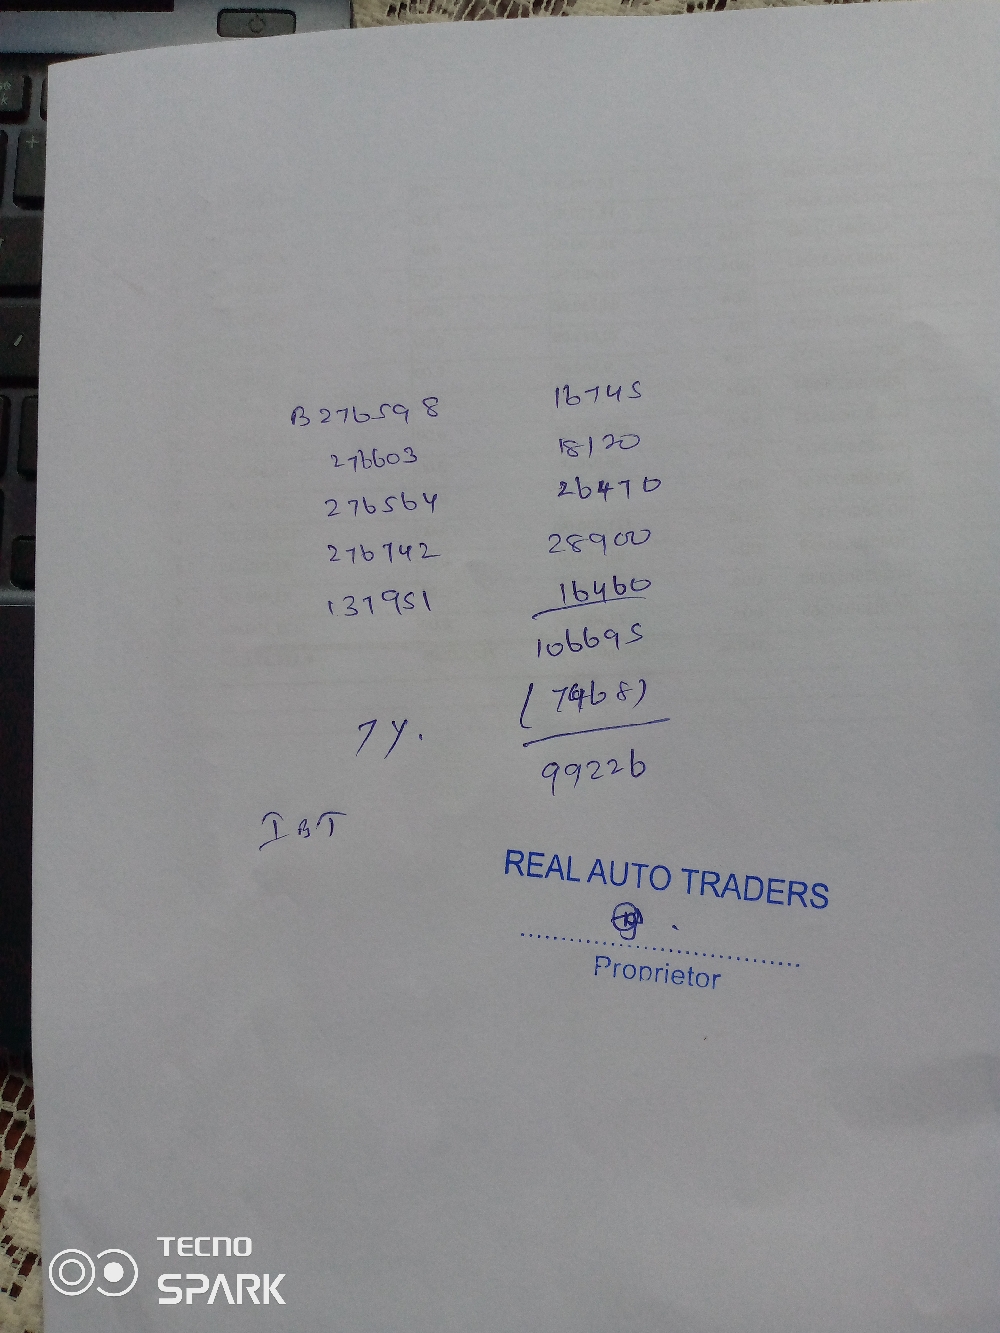 B276598 16745
276603 18120
276564 26470
276742 28900
137951 16460
106695
(7468)
7%.
99226
IBT
REAL AUTO TRADERS
Proprietor
TECNO
SPARK